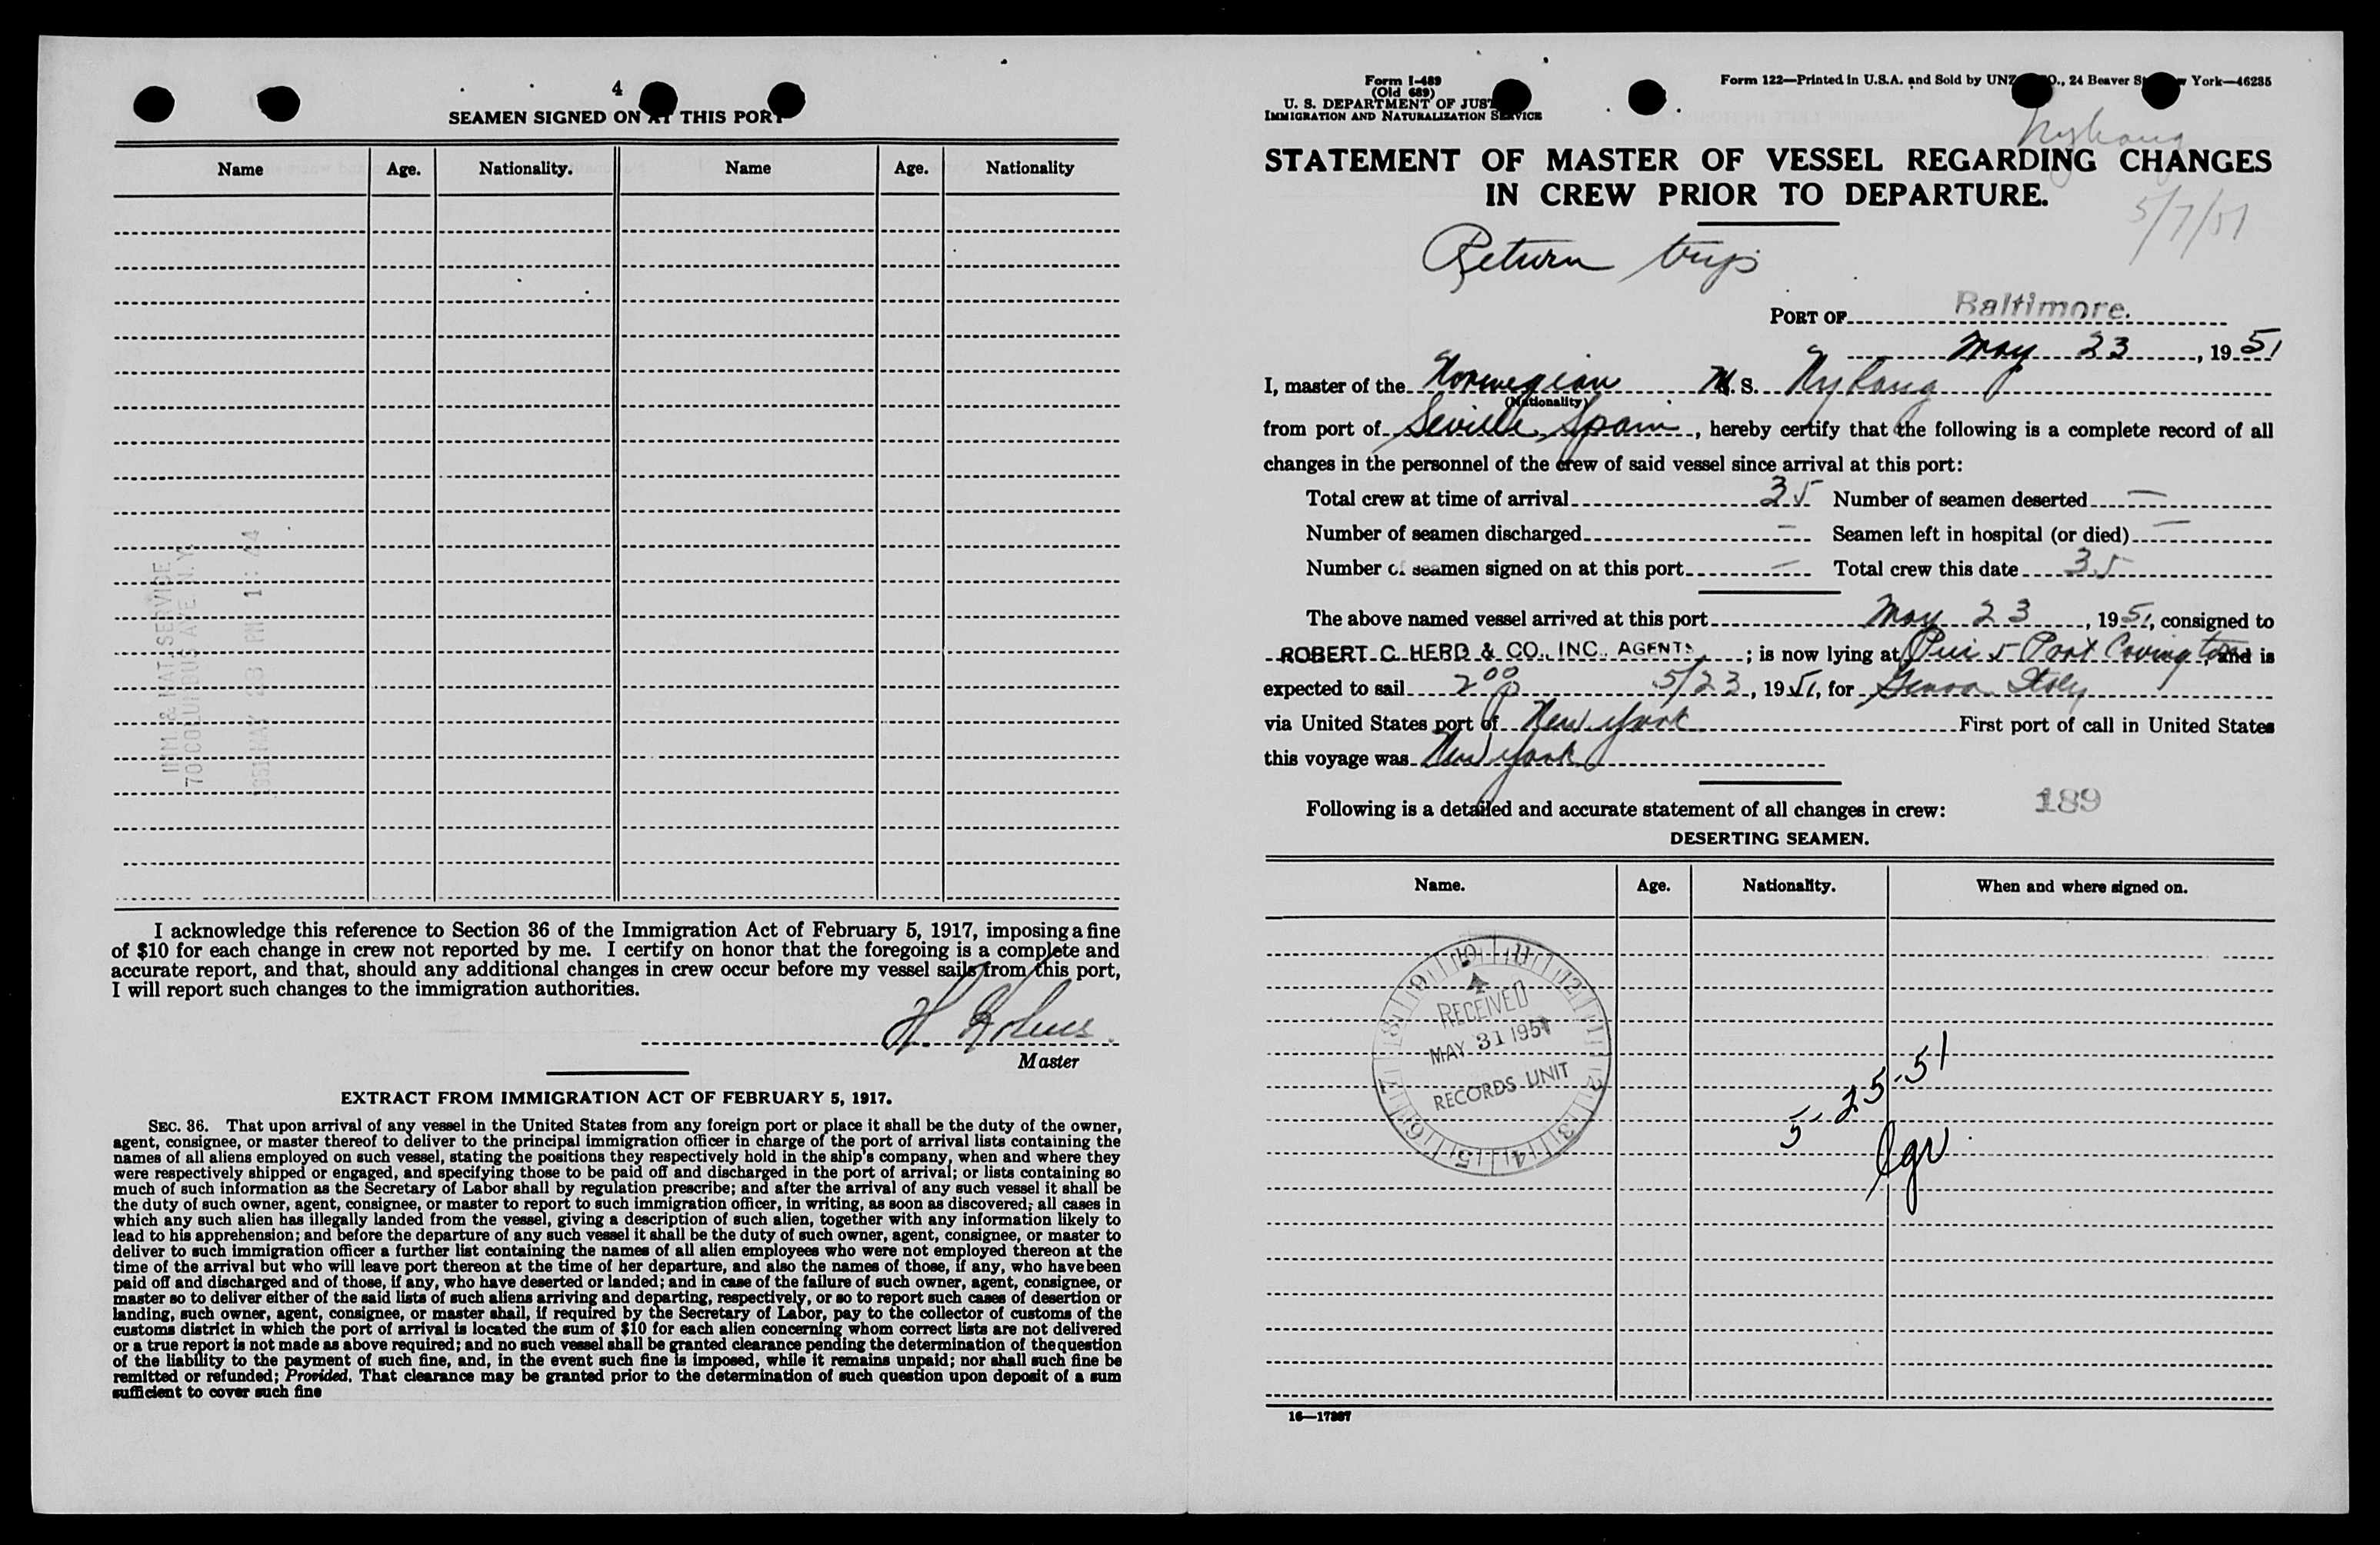 4
SEAMEN SIGNED ON AT THIS PORT
Name Age. Nationality. Name Age. Nationality
IMM. & NAT. SERVICE
70 COLUMBUS AVE. N.Y.
1951 MAY 28 PM 1:
I acknowledge this reference to Section 36 of the Immigration Act of February 5, 1917, imposing a fine
of $10 for each change in crew not reported by me. I certify on honor that the foregoing is a complete and
accurate report, and that, should any additional changes in crew occur before my vessel sails from this port,
I will report such changes to the immigration authorities.
H.
Master
EXTRACT FROM IMMIGRATION ACT OF FEBRUARY 5, 1917.
SEC. 36. That upon arrival of any vessel in the United States from any foreign port or place it shall be the duty of the owner,
agent, consignee, or master thereof to deliver to the principal immigration officer in charge of the port of arrival lists containing the
names of all aliens employed on such vessel, stating the positions they respectively hold in the ship's company, when and where they
were respectively shipped or engaged, and specifying those to be paid off and discharged in the port of arrival; or lists containing so
much of such information as the Secretary of Labor shall by regulation prescribe; and after the arrival of any such vessel it shall be
the duty of such owner, agent, consignee, or master to report to such immigration officer, in writing, as soon as discovered, all cases in
which any such alien has illegally landed from the vessel, giving a description of such alien, together with any information likely to
lead to his apprehension; and before the departure of any such vessel it shall be the duty of such owner, agent, consignee, or master to
deliver to such immigration officer a further list containing the names of all alien employees who were not employed thereon at the
time of the arrival but who will leave port thereon at the time of her departure, and also the names of those, if any, who have been
paid off and discharged and of those, if any, who have deserted or landed; and in case of the failure of such owner, agent, consignee, or
master so to deliver either of the said lists of such aliens arriving and departing, respectively, or so to report such cases of desertion or
landing, such owner, agent, consignee, or master shall, if required by the Secretary of Labor, pay to the collector of customs of the
customs district in which the port of arrival is located the sum of $10 for each alien concerning whom correct lists are not delivered
or a true report is not made as above required; and no such vessel shall be granted clearance pending the determination of the question
of the liability to the payment of such fine, and, in the event such fine is imposed, while it remains unpaid; nor shall such fine be
remitted or refunded; Provided, That clearance may be granted prior to the determination of such question upon deposit of a sum
sufficient to cover such fine
Form I-489
(Old 689)
U. S. DEPARTMENT OF JUST
IMMIGRATION AND NATURALIZATION SERVICE
Form 122—Printed in U.S.A. and Sold by UNZ O., 24 Beaver S York—46235
Nyhaug
STATEMENT OF MASTER OF VESSEL REGARDING CHANGES
IN CREW PRIOR TO DEPARTURE.
5/7/51
Return trip
PORT OF Baltimore.
May 23, 1951
I, master of the Norwegian M. S. Nyhaug
(Nationality)
from port of Seville, Spain, hereby certify that the following is a complete record of all
changes in the personnel of the crew of said vessel since arrival at this port:
Total crew at time of arrival 35 Number of seamen deserted —
Number of seamen discharged — Seamen left in hospital (or died) —
Number of seamen signed on at this port — Total crew this date 35
The above named vessel arrived at this port May 23, 1951, consigned to
ROBERT C. HERD & CO., INC. AGENTS; is now lying at Pier 5 Port Covington, and is
expected to sail 2 00 p 5/23, 1951, for Genoa Italy
via United States port of New York First port of call in United States
this voyage was New York
Following is a detailed and accurate statement of all changes in crew: 189
DESERTING SEAMEN.
Name. Age. Nationality. When and where signed on.
RECEIVED
MAY 31 1951
RECORDS UNIT
5-25-51
16—17367